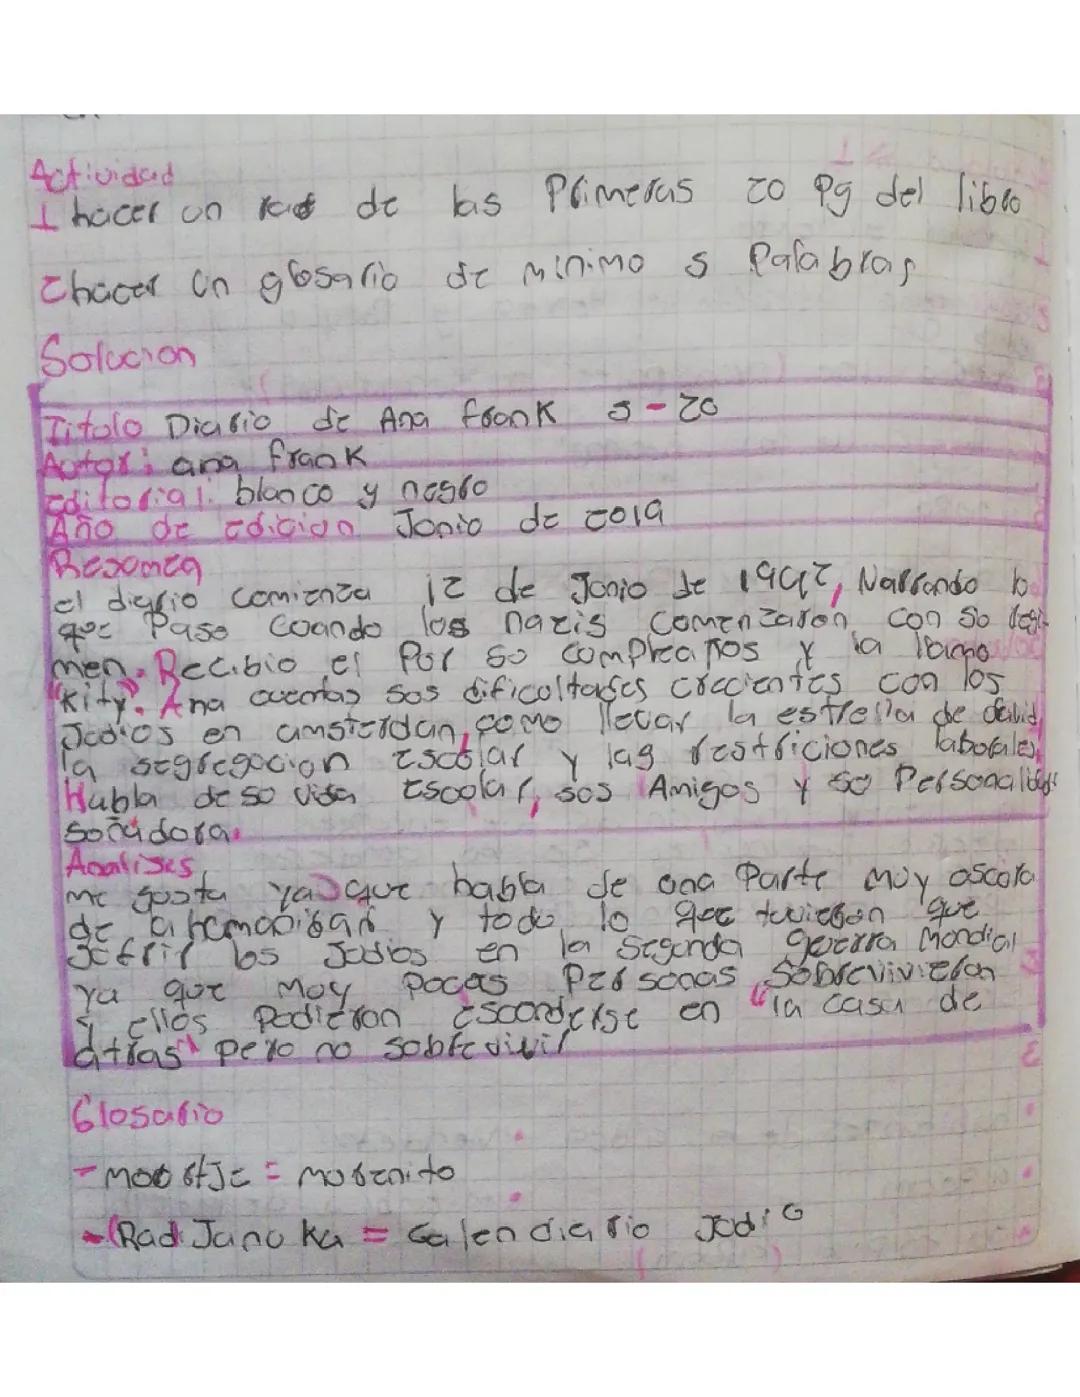 Actividad
1 hacer un de las Primeras 20 Pg del libro
2 hacer un glosario de minimo 5 Palabras
Solucion
Titulo Diario de Ana frank 5-20
Autor: ana frank
Editorial: blanco y negro
Año de edicion Junio de 2019
Resumen
el diario comienza 12 de Junio de 1942, Narrando lo
que Paso cuando los nazis comenzaron con so regi-
men. Recibio el Por so compleaños y la llamo
"Kity". Ana cuenta sos dificoltades crecientes con los
Judios en amsterdan, como llevar la estrella de david,
la segregacion escolar y las restriciones laborales,
Habla de so vida escolar, sos Amigos y so Personalidad
soñadora.
Analises
me gusta ya que habla de una Parte moy oscora
de la homanidad y todo lo que tuvieron que
sofrir los Jodios en la segunda guerra Mondial
ya que moy pocas Personas sobrevivieron
y ellos Podieron esconderse en "la casa de
atras" pero no sobrevivir
Glosario
- moortje = morenito
- Jano ka = Calendiario Jodio